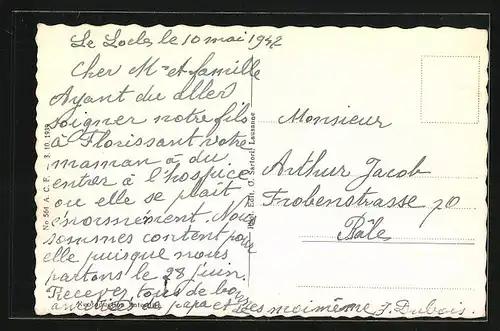 Le Locle, le 10 mai 1942
Cher Mr et famille
Ayant du aller
soigner notre fils
à Florissant votre
maman a du
entrer à l'hospice
ou elle se plaît
énormément. Nous
sommes content pour
elle puisque nous
partons le 28 juin.
Recevez tous de bons
de papa et des moimême J. Dubois.
Monsieur
Arthur Jacob
Frobenstrasse 70
Bâle
No 564 A. C. F. 3. 10. 1939
Edit. O. Sartori, Lausanne